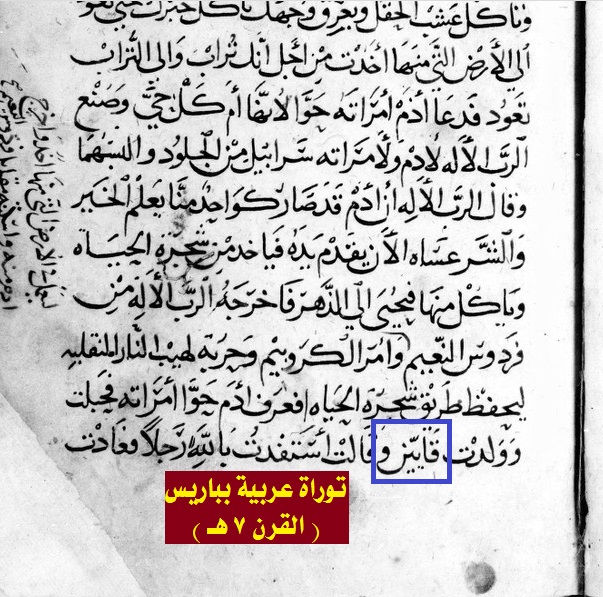 وتاكل عشب الحقل وبعرق وجهك تاكل خبزك حتي تعود
الي الأرض التي منها اخدت من اجل أنك تراب والي التراب
تعود فدعا أدم أمراته حوا لانها أم كل حي وصنع
الرب الأله لادم ولامراته سرابيل من الجلود والبسهما
وقال الرب الأله أن أدم قد صار كواحد منا يعلم الخير
والشر عساه الأن يقدم يده فياخد من شجرة الحياه
وياكل منها فيحيى الي الدهر فاخرجه الرب الأله من
فردوس النعيم وامر الكروبيم وحربه لهيب النار المنقلبه
ليحفظ طريق شجرة الحياه فعرف أدم حوا أمراته فحبلت
وولدت قايين وقالت أستفدت بالله رجلاً وعادت
الارض التي منها اخد واخرج
توراة عربية بباريس
( القرن ٧ هـ )